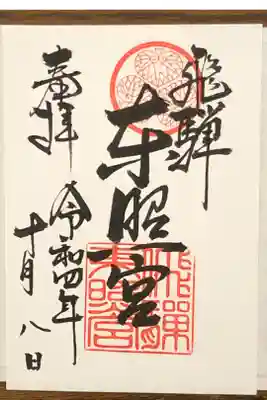 飛騨
東照宮
奉拝
令和四年
十月八日
飛騨東照宮